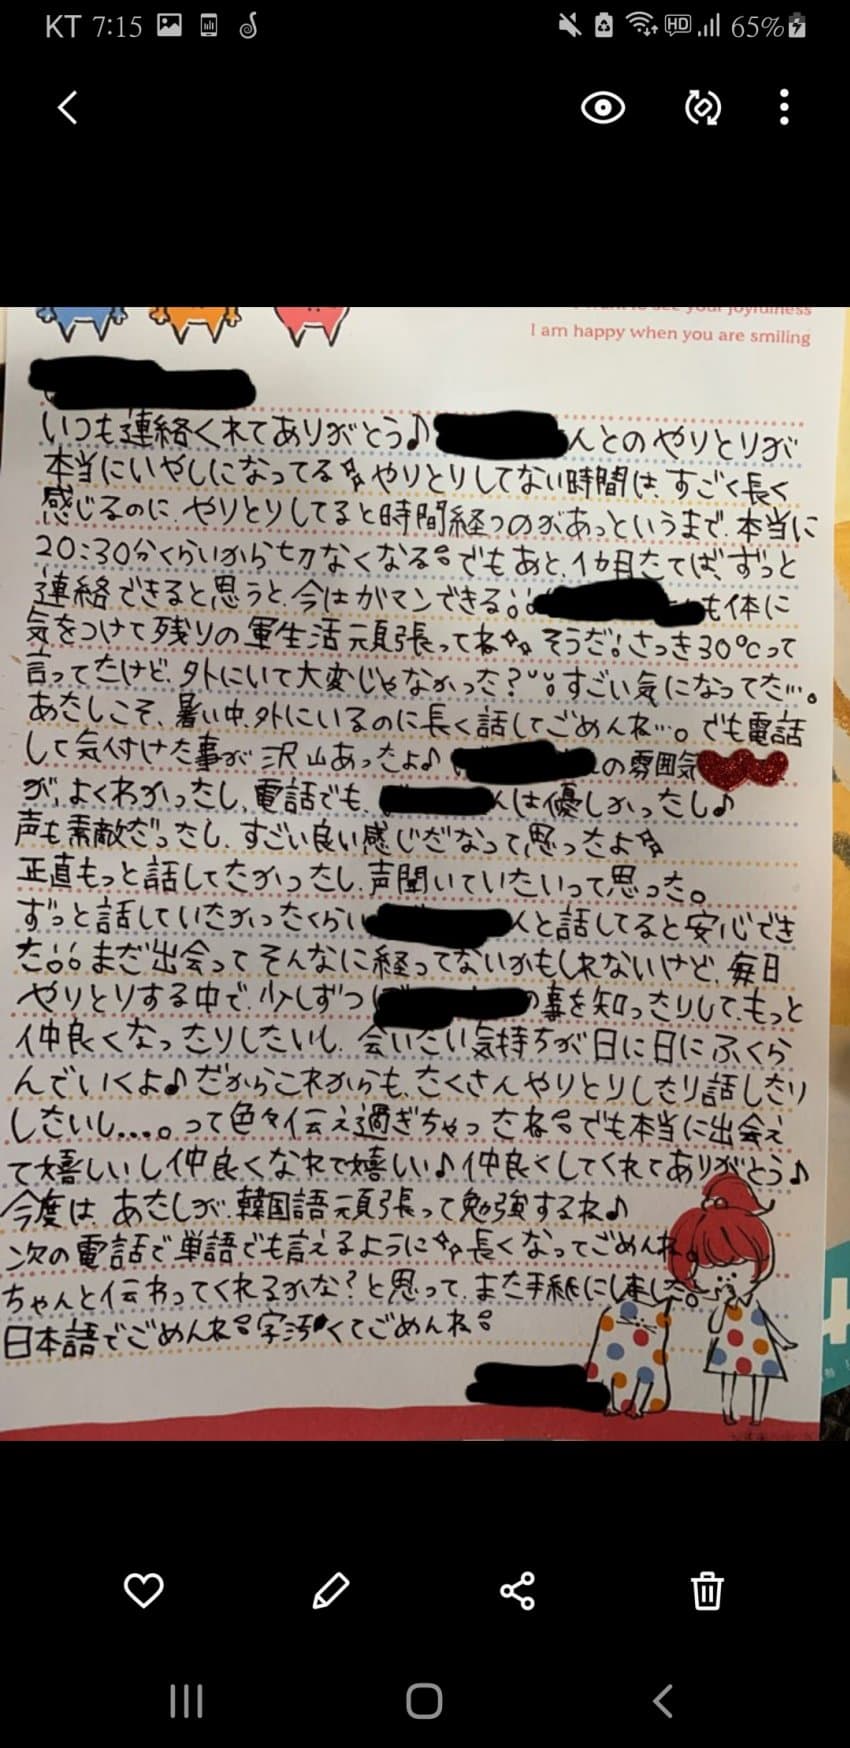 KT 7:15
HD 65%
I am happy when you are smiling
いつも連絡くれてありがとう♪ 人とのやりとりが
本当にいやしになってる やりとりしてない時間は、すごく長く
感じるのに、やりとりしてると時間経つのがあっというまで、本当に
20:30分くらいから切なくなる でもあと、1カ月たてば、ずっと
連絡できると思うと、今はがマンできる も体に
気をつけて残りの軍生活頑張ってね そうだ!さっき30℃って
言ってたけど、外にいて大変じゃなかった? すごい気になってた…。
あたしこそ、暑い中、外にいるのに長く話してごめんね…。でも電話
して気付けた事が沢山あったよ♪ の雰囲気
が、よくわかったし、電話でも、 人は優しかったし♪
声も素敵だったし、すごい良い感じだなって思ったよ
正直もっと話してたかったし、声聞いていたいって思った。
ずっと話していたかったくらい 人と話してると安心でき
た まだ出会ってそんなに経ってないかもしれないけど、毎日
やりとりする中で、少しずつ の事を知ったりして、もっと
仲良くなったりしたいし、会いたい気持ちが日に日にふくら
んでいくよ♪だからこれからも、たくさんやりとりしたり話したり
したいし....。って色々伝え過ぎちゃったね でも本当に出会え
て嬉しいし仲良くなれて嬉しい♪仲良くしてくれてありがとう♪
今度は、あたしが、韓国語頑張って勉強するね♪
次の電話で単語でも言えるように 長くなってごめんね。
ちゃんと伝わってくれるかな?と思って、また手紙にしました。
日本語でごめんね 字汚くてごめんね